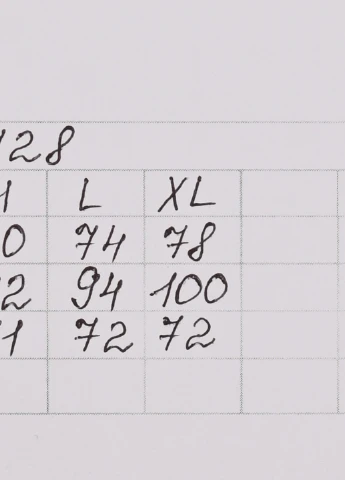 128
L XL
0 74 78
2 94 100
1 72 72